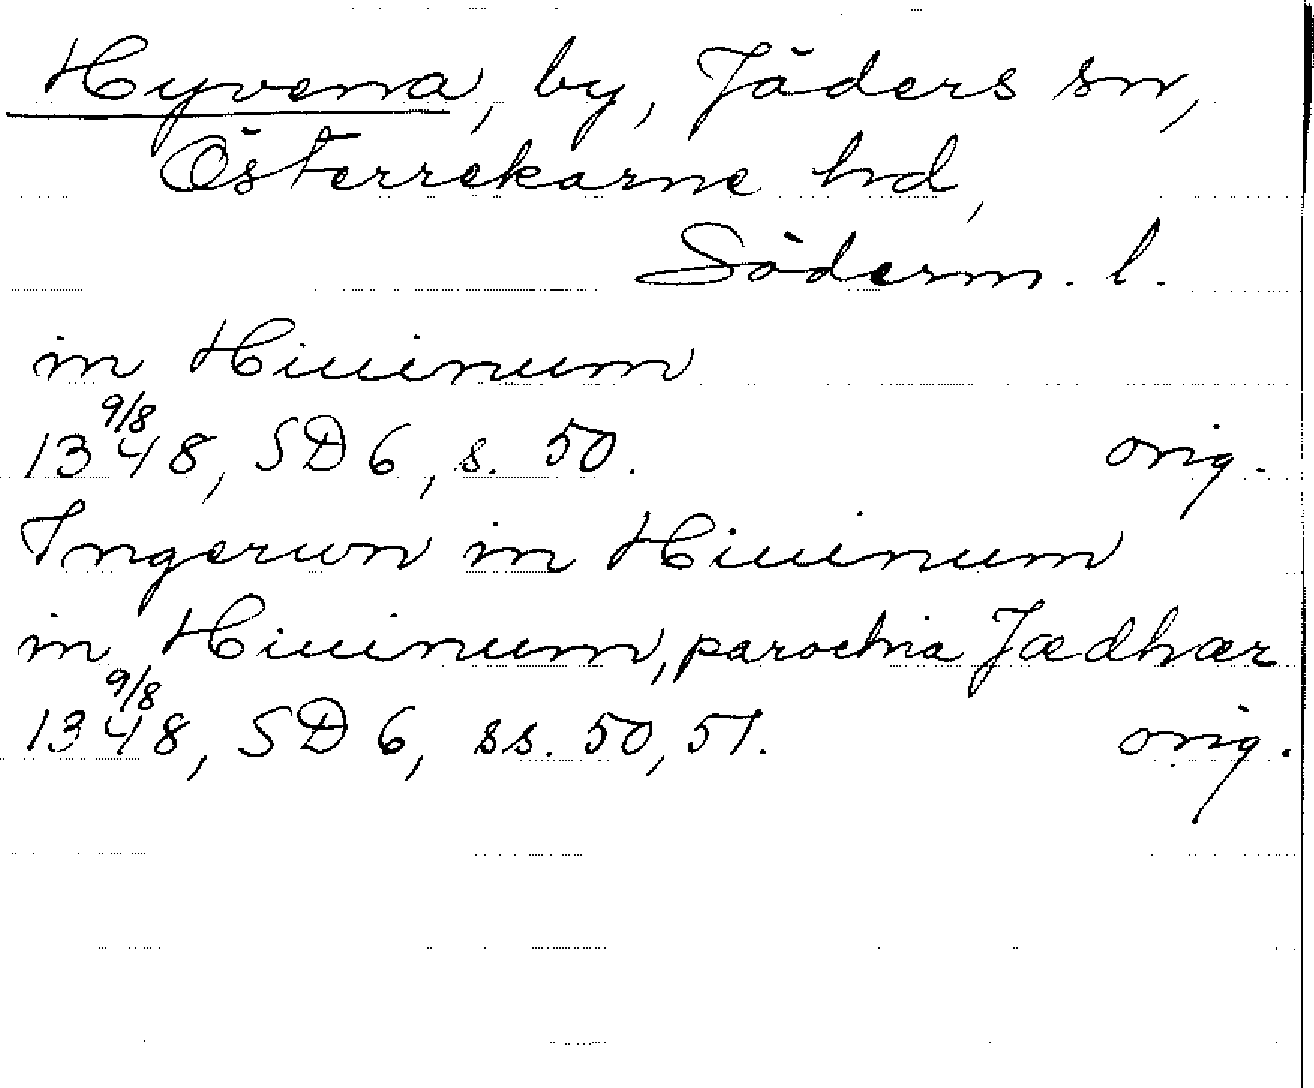 Hyvena, by, Jäders sn,
Österrekarne hd,
Söderm. l.
in Hiuinum
13 9/8 48, SD 6, s. 50. orig.
Ingerun in Hiuinum
in Hiuinum, parochia Jædhær
13 9/8 48, SD 6, ss. 50, 51. orig.